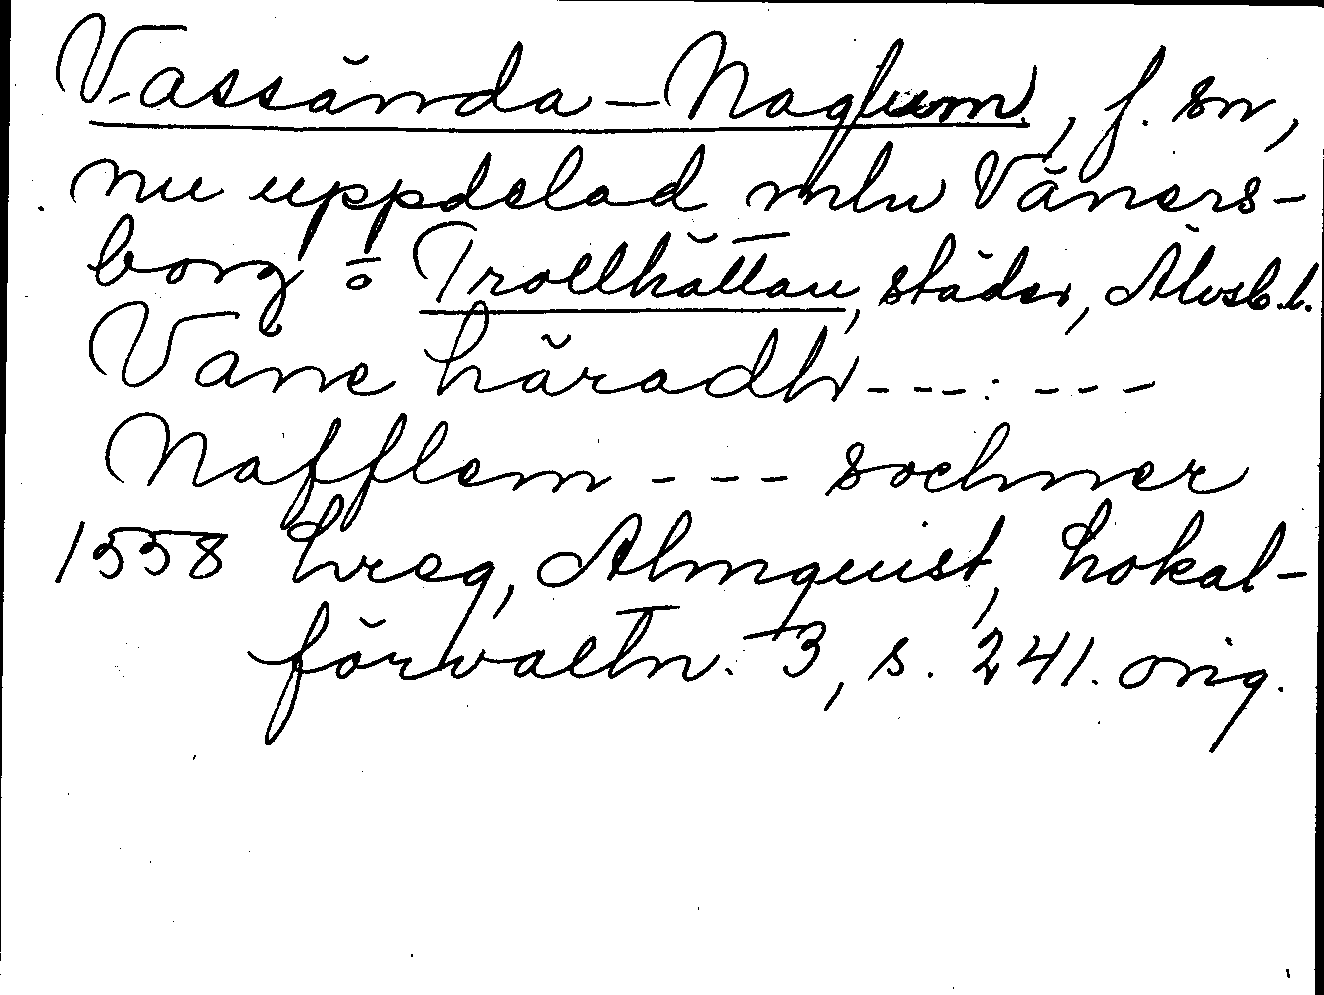 Vassända-Naglum, f. sn,
nu uppdelad mln Väners-
borg o Trollhättan, städer, Älvsb.l.
Väne häradh ---:---
Nafflem --- sochner
1558 hreg, Almquist, Lokal-
förvaltn. 3, s. 241. orig.